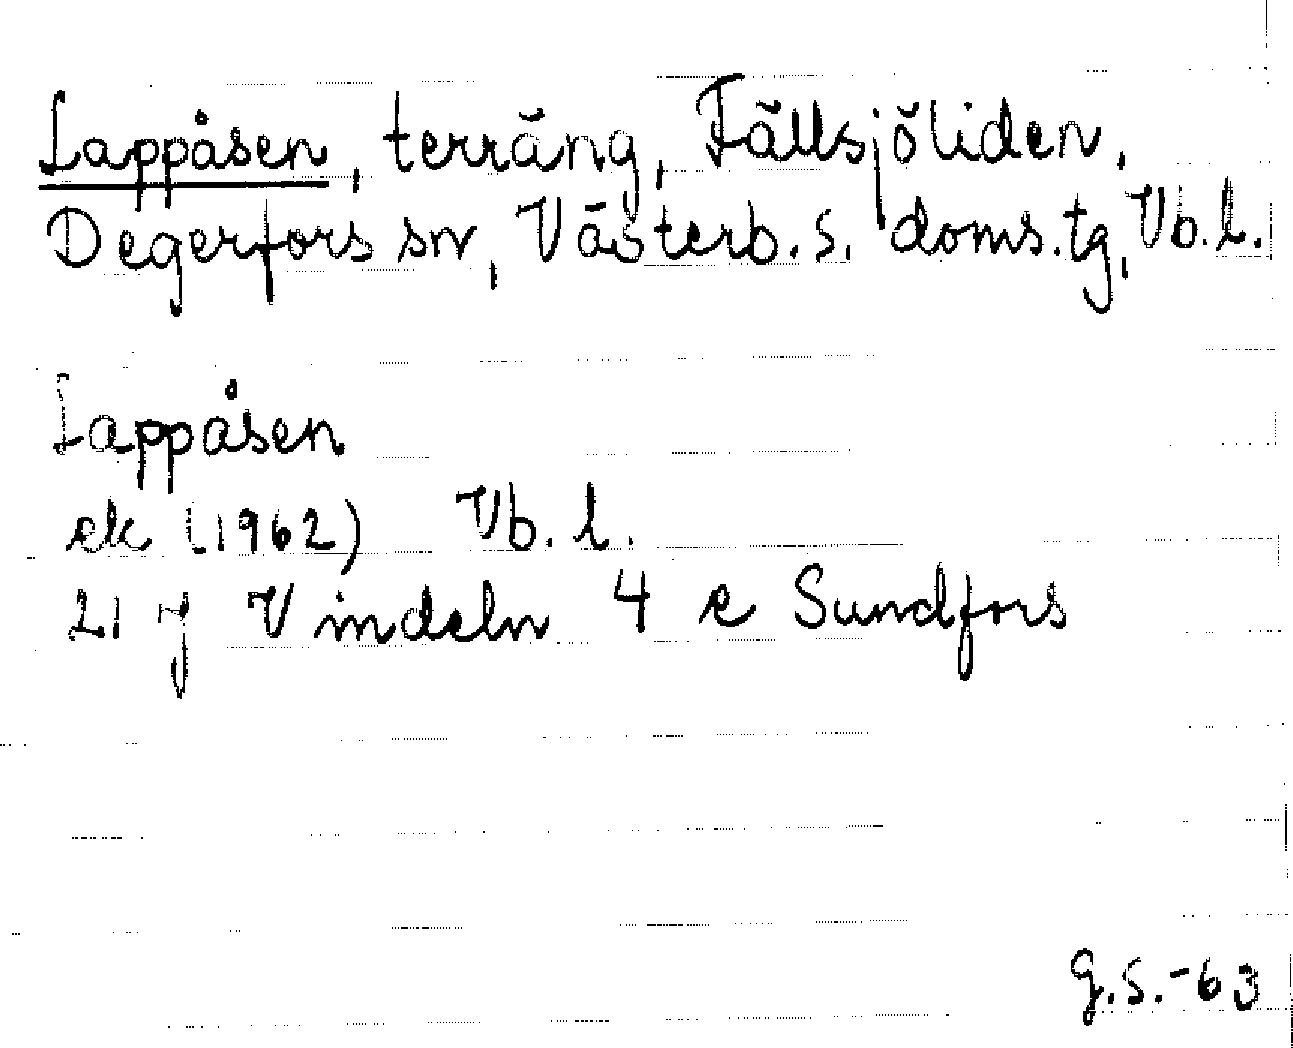 Lappåsen, terräng, Fällsjöliden,
Degerfors sn, Västerb. s. doms.tg, Vb. l.
Lappåsen
ek (1962) Vb. l.
21 J Vindeln 4 e Sundfors
G.S.-63